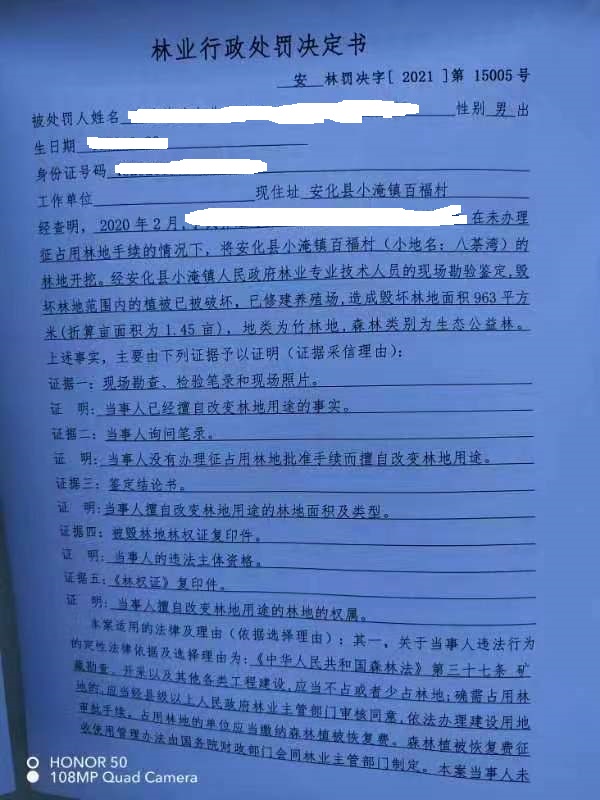 林业行政处罚决定书
安 林罚决字[ 2021 ]第 15005 号
被处罚人姓名 性别 男 出
生日期
身份证号码
工作单位 现住址 安化县小淹镇百福村
经查明, 2020 年 2 月, 在未办理
征占用林地手续的情况下，将安化县小淹镇百福村（小地名：八茶湾）的
林地开挖。经安化县小淹镇人民政府林业专业技术人员的现场勘验鉴定,毁
坏林地范围内的植被已被破坏，已修建养殖场,造成毁坏林地面积 963 平方
米(折算亩面积为 1.45 亩)，地类为竹林地,森林类别为生态公益林。
上述事实，主要由下列证据予以证明（证据采信理由）：
证据一：现场勘查、检验笔录和现场照片。
证 明：当事人已经擅自改变林地用途的事实。
证据二：当事人询问笔录。
证 明：当事人没有办理征占用林地批准手续而擅自改变林地用途。
证据三：鉴定结论书。
证 明:当事人擅自改变林地用途的林地面积及类型。
证据四：被毁林地林权证复印件。
证 明：当事人的违法主体资格。
证据五：《林权证》复印件。
证 明：当事人擅自改变林地用途的林地的权属。
本案适用的法律及理由（依据选择理由）；其一，关于当事人违法行为
的定性法律依据及选择理由为：《中华人民共和国森林法》第三十七条 矿
藏勘查、开采以及其他各类工程建设，应当不占或者少占林地;确需占用林
地的,应当经县级以上人民政府林业主管部门审核同意，依法办理建设用地
审批手续。占用林地的单位应当缴纳森林植被恢复费。森林植被恢复费征
收使用管理办法由国务院财政部门会同林业主管部门制定。本案当事人未
HONOR 50
108MP Quad Camera